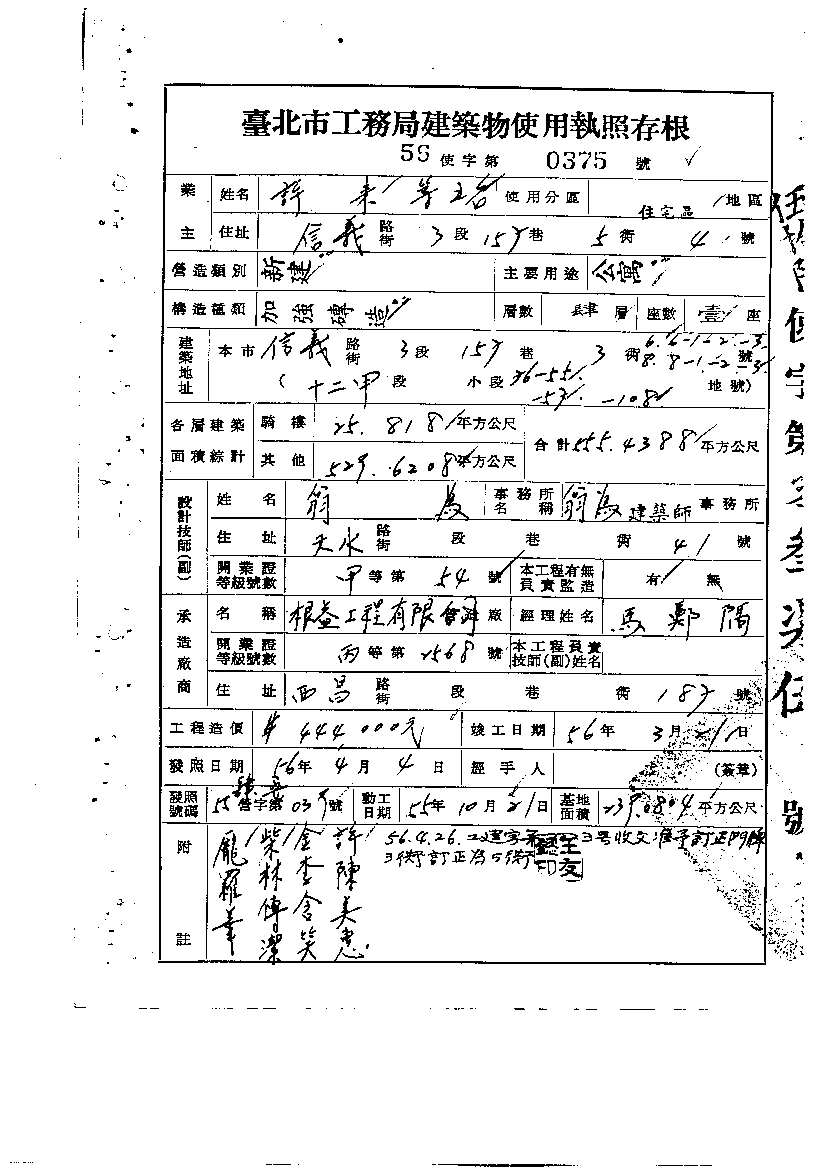 臺北市工務局建築物使用執照存根
56 使字第 0375 號
業主 姓名 許 來 等 使用分區 住宅區 地區
住址 信義 路街 3 段 157 巷 5 衖 4 號
營造類別 新建 主要用途 公寓
構造種類 加強磚造 層數 肆 層 座數 壹 座
建築地址 本市 信義 路街 3 段 157 巷 3 衖 6.6-1-2-3 8.8-1-2-3 號
( 十二甲 段 小段 76-55 -57 -108 地號)
各層建築面積綜計 騎樓 25.818 平方公尺 合計 555.4388 平方公尺
其他 529.6208 平方公尺
設計技師(副) 姓名 翁 為 事務所名稱 翁為 建築師 事務所
住址 天水 路街 段 巷 衖 41 號
開業證等級號數 甲 等第 54 號 本工程有無負責監造 有 無
承造廠商 名稱 根益工程有限 廠 經理姓名 馬鄭隔
開業證等級號數 丙 等第 2568 號 本工程負責技師(副)姓名
住址 西昌 路街 段 巷 衖 187 號
工程造價 444000元 竣工日期 56 年 3 月 21 日
發照日期 56 年 4 月 4 日 經手人 (簽章)
發照號碼 55 營字第 號 動工日期 55 年 10 月 21 日 基地面積 237.0804 平方公尺
附註 許陳美惠
金李含笑
柴林傳潔
龐羅華
56.4.26. 建字第 3號收文准予訂正門牌
3衖訂正為5衖
使字第 叁柒伍 號